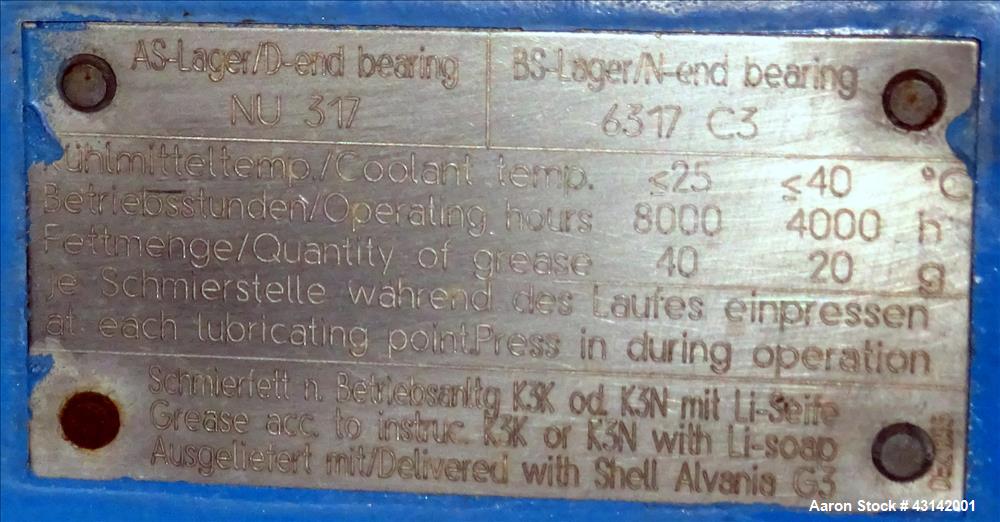 AS-Lager/D-end bearing BS-Lager/N-end bearing
NU 317 6317 C3
Kühlmitteltemp./Coolant temp. ≤25 ≤40 °C
Betriebsstunden/Operating hours 8000 4000 h
Fettmenge/Quantity of grease 40 20 g
je Schmierstelle während des Laufes einpressen
at each lubricating point.Press in during operation
Schmierfett n. Betriebsanltg K3K od. K3N mit Li-Seife
Grease acc. to instruc. K3K or K3N with Li-soap
Ausgeliefert mit/Delivered with Shell Alvania G3
Aaron Stock # 43142001